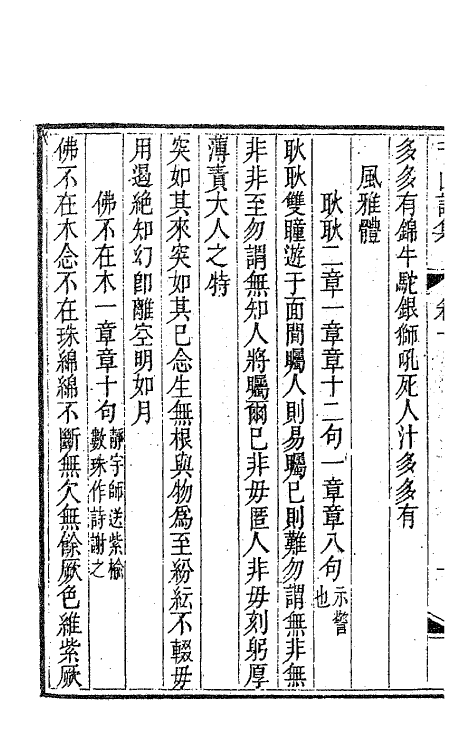 多多有錦牛駝銀獅吼死人汁多多有
風雅體
耿耿二章一章章十二句一章章八句示警也
耿耿雙瞳遊于面間矚人則易矚已則難勿謂無非無
非非至勿謂無知人將矚爾已非毋匿人非毋刻躬厚
薄責大人之特
突如其來突如其已念生無根與物為至紛紜不輟毋
用遏絶知幻卽離空明如月
佛不在木一章章十句靜宇師送紫檢
數珠作詩謝之
佛不在木念不在珠綿綿不斷無欠無餘厥色維紫厥